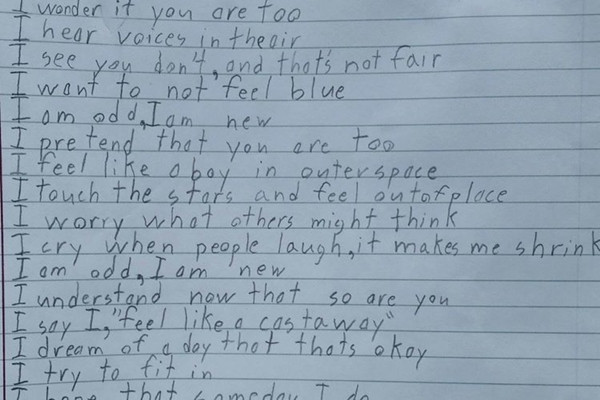 I wonder if you are too
I hear voices in theair
I see you don't, and that's not fair
I want to not feel blue
I am odd, I am new
I pretend that you are too
I feel like a boy in outerspace
I touch the stars and feel outofplace
I worry what others might think
I cry when people laugh, it makes me shrink
I am odd, I am new
I understand now that so are you
I say I, "feel like a castaway"
I dream of a day that thats okay
I try to fit in
I hope that someday I do